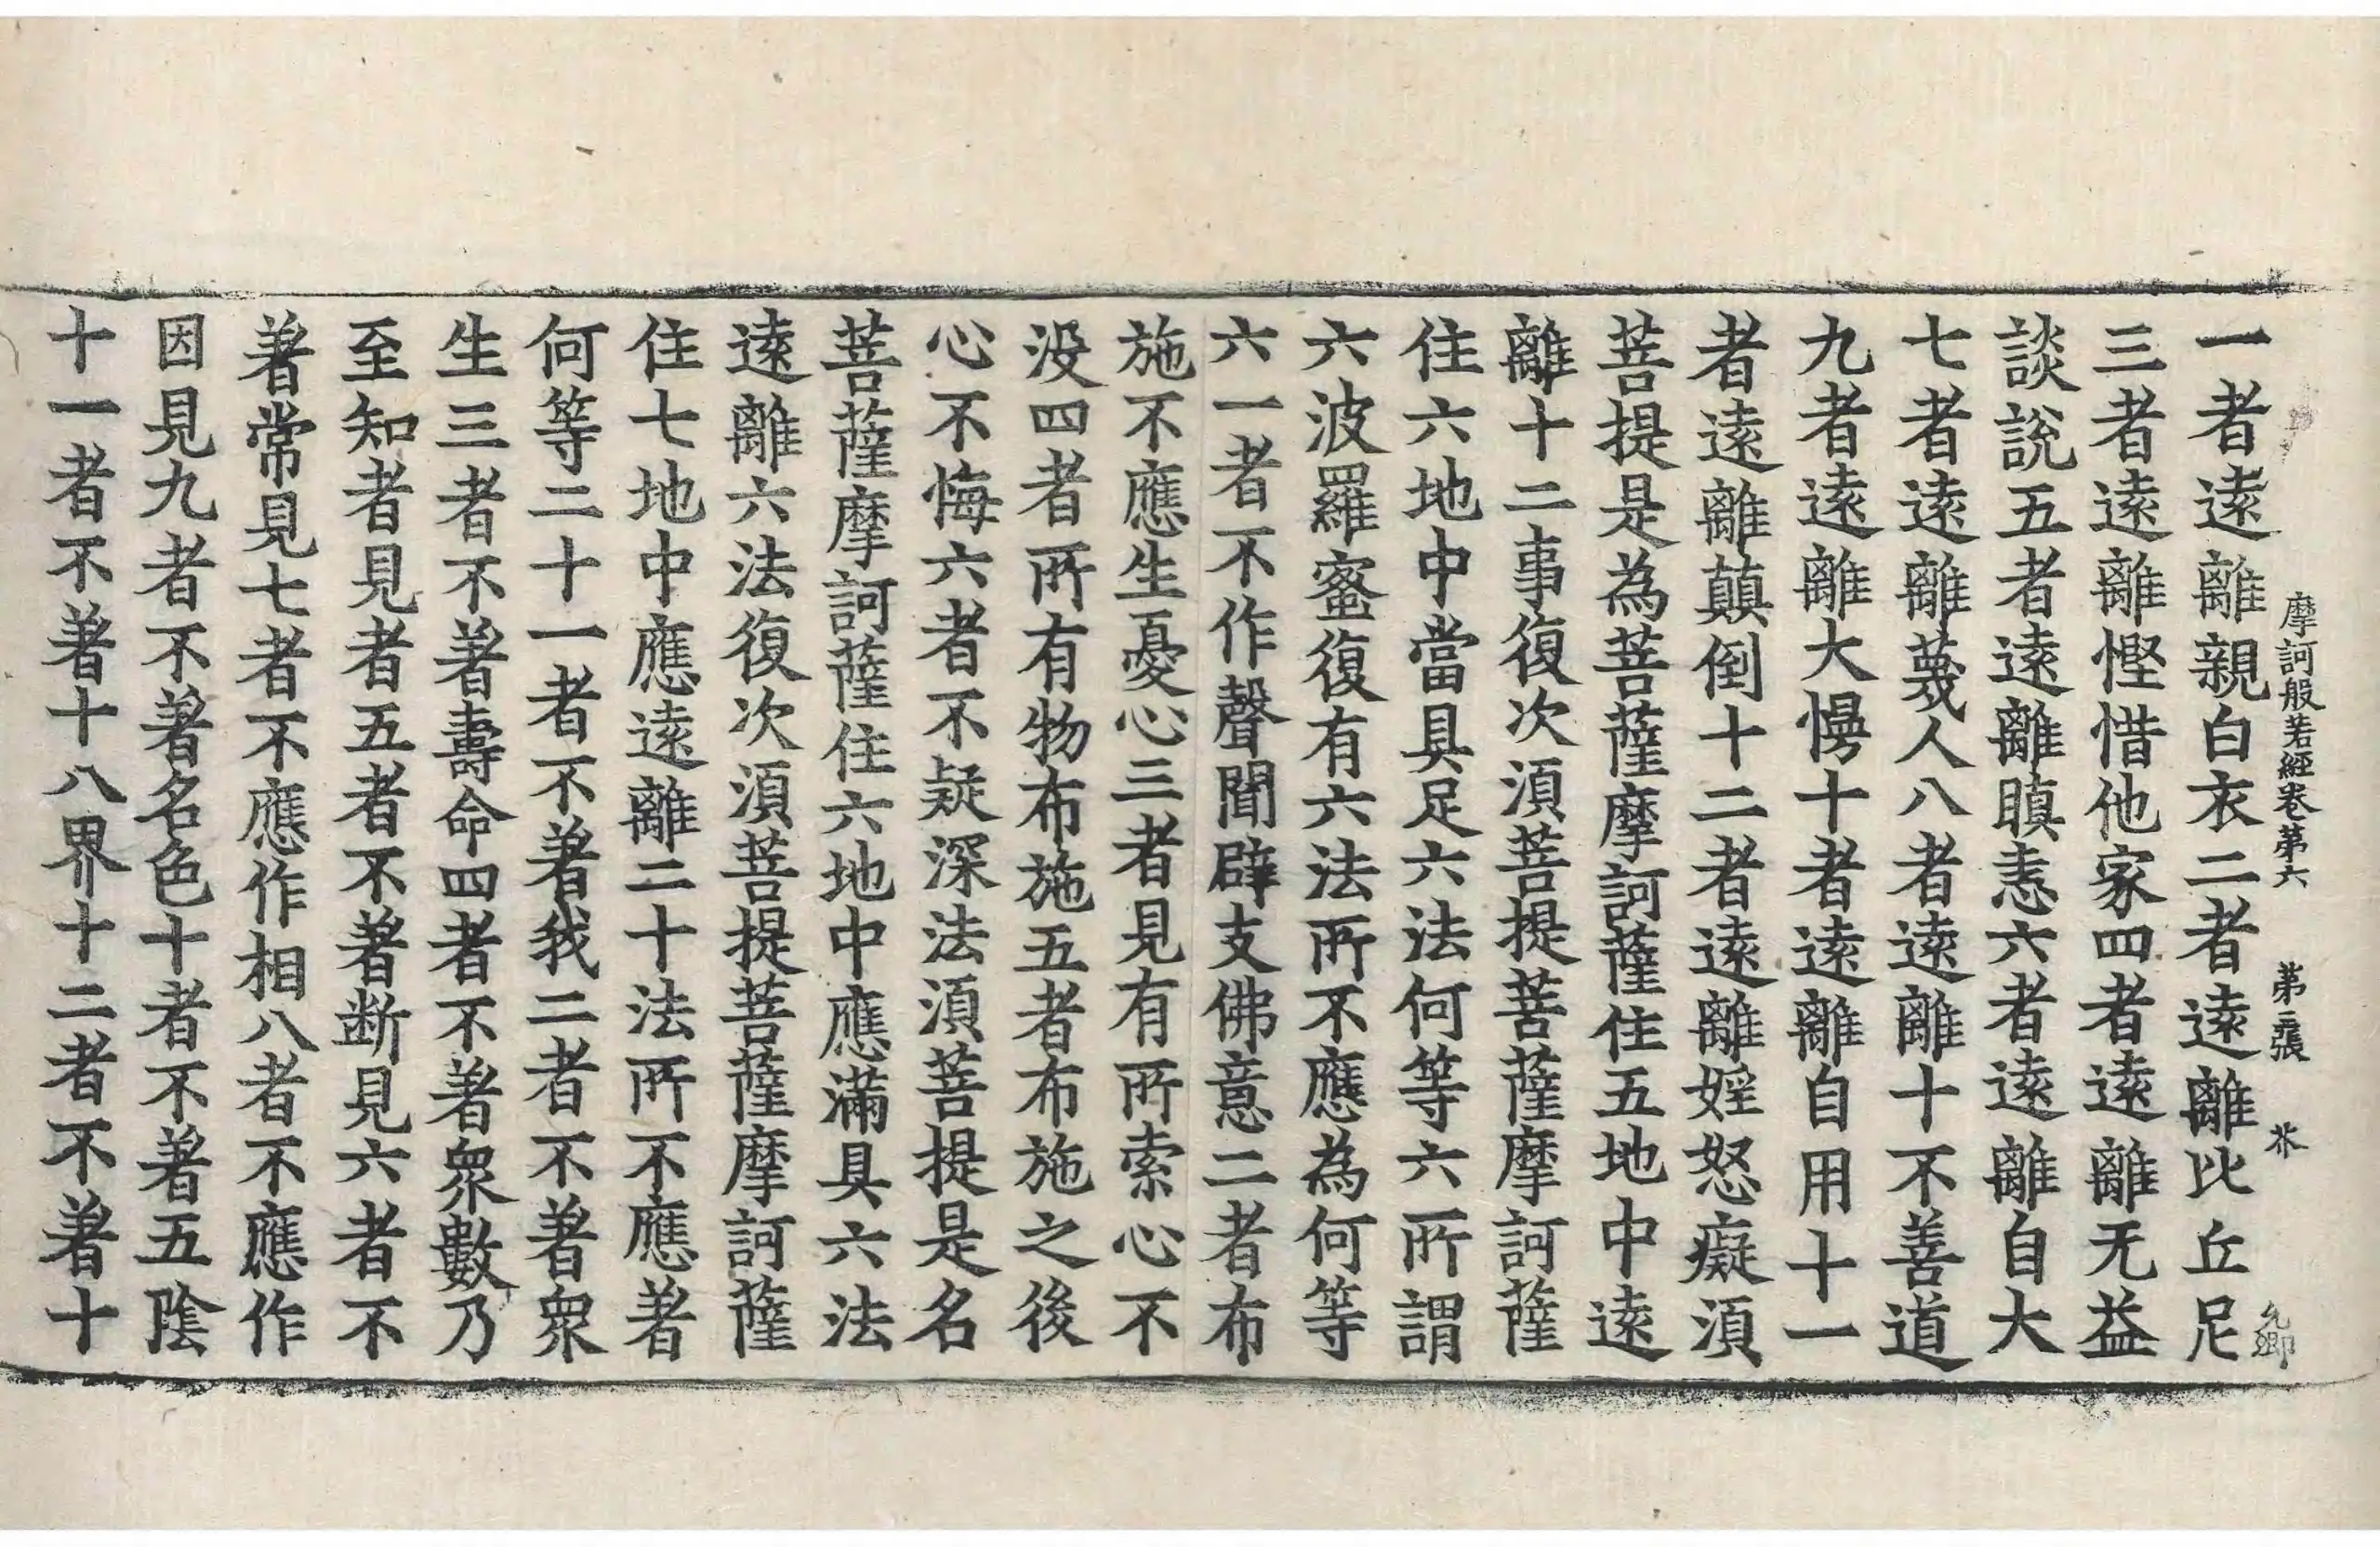 摩訶般若經卷第六 第二張 芥 允卿
一者遠離親白衣二者遠離比丘尼
三者遠離慳惜他家四者遠離无益
談說五者遠離瞋恚六者遠離自大
七者遠離蔑人八者遠離十不善道
九者遠離大慢十者遠離自用十一
者遠離顛倒十二者遠離婬怒癡須
菩提是為菩薩摩訶薩住五地中遠
離十二事復次須菩提菩薩摩訶薩
住六地中當具足六法何等六所謂
六波羅蜜復有六法所不應為何等
六一者不作聲聞辟支佛意二者布
施不應生憂心三者見有所索心不
没四者所有物布施五者布施之後
心不悔六者不疑深法須菩提是名
菩薩摩訶薩住六地中應滿具六法
遠離六法復次須菩提菩薩摩訶薩
住七地中應遠離二十法所不應著
何等二十一者不著我二者不著眾
生三者不著壽命四者不著眾數乃
至知者見者五者不著断見六者不
著常見七者不應作相八者不應作
因見九者不著名色十者不著五陰
十一者不著十八界十二者不著十